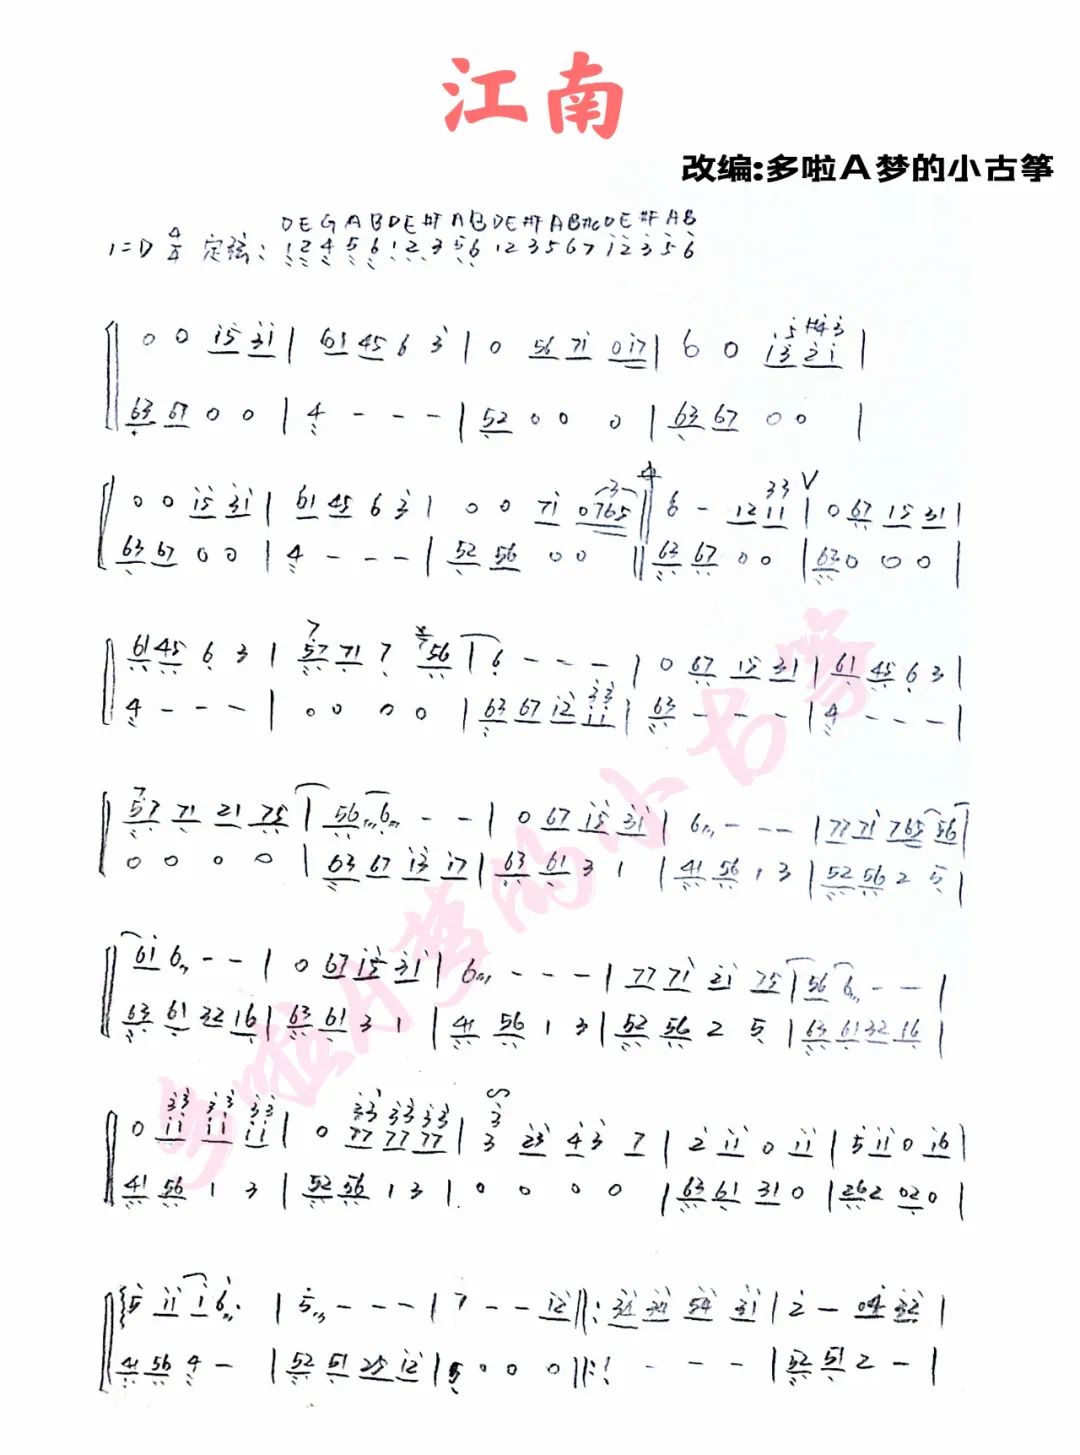 江南
改编:多啦A梦的小古筝
D E G A B D E #F A B D E #F A B #C D E #F A B
1=D 4/4 定弦: 1 2 4 5 6 1 2 3 5 6 1 2 3 5 6 7 1 2 3 5 6
0 0 15 31 | 61 45 6 3 | 0 56 71 017 | 6 0 13 21 |
63 67 0 0 | 4 - - - | 52 0 0 0 | 63 67 0 0 |
0 0 15 31 | 61 45 6 3 | 0 0 71 0765 || 6 - 12 11 | 0 67 15 31 |
63 67 0 0 | 4 - - - | 52 56 0 0 || 63 67 0 0 | 63 0 0 0 |
61 45 6 3 | 57 71 7 56 | 6 - - - | 0 67 15 31 | 61 45 6 3 |
4 - - - | 0 0 0 0 | 63 67 12 11 | 63 - - - | 4 - - - |
57 71 21 75 | 56 6 - - | 0 67 15 31 | 6 - - - | 77 71 765 56 |
0 0 0 0 | 63 67 13 17 | 63 61 3 1 | 41 56 1 3 | 52 56 2 5 |
61 6 - - | 0 67 15 31 | 6 - - - | 77 71 21 75 | 56 6 - - |
63 61 32 16 | 63 61 3 1 | 41 56 1 3 | 52 56 2 5 | 63 61 32 16 |
33 33 33 33 33 33 3
0 11 11 11 | 0 77 77 77 | 3 23 43 7 | 2 11 0 11 | 5 11 0 16 |
41 56 1 3 | 52 56 1 3 | 0 0 0 0 | 63 61 31 0 | 262 02 0 |
5 11 1 6 | 5 - - - | 7 - - 12 ||: 34 34 54 31 | 2 - 04 32 |
41 56 4 - | 52 51 25 12 | 5 0 0 0 ||: 1 - - - | 52 51 2 - |
多啦A梦的小古筝